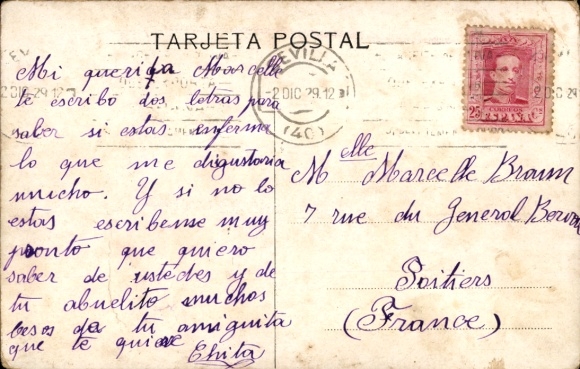 TARJETA POSTAL
SEVILLA
2 DIC 29.12
(40)
25
ESPAÑA
Mi querida Marcelle
te escribo dos letras para
saber si estas enferma
lo que me digustaria
mucho. Y si no lo
estas escribense muy
pronto que quiero
saber de ustedes y de
tu abuelito muchos
besos de tu amiguita
que te quiere
Chita
Melle Marcelle Braun
7 rue du General
Poitiers
(France)